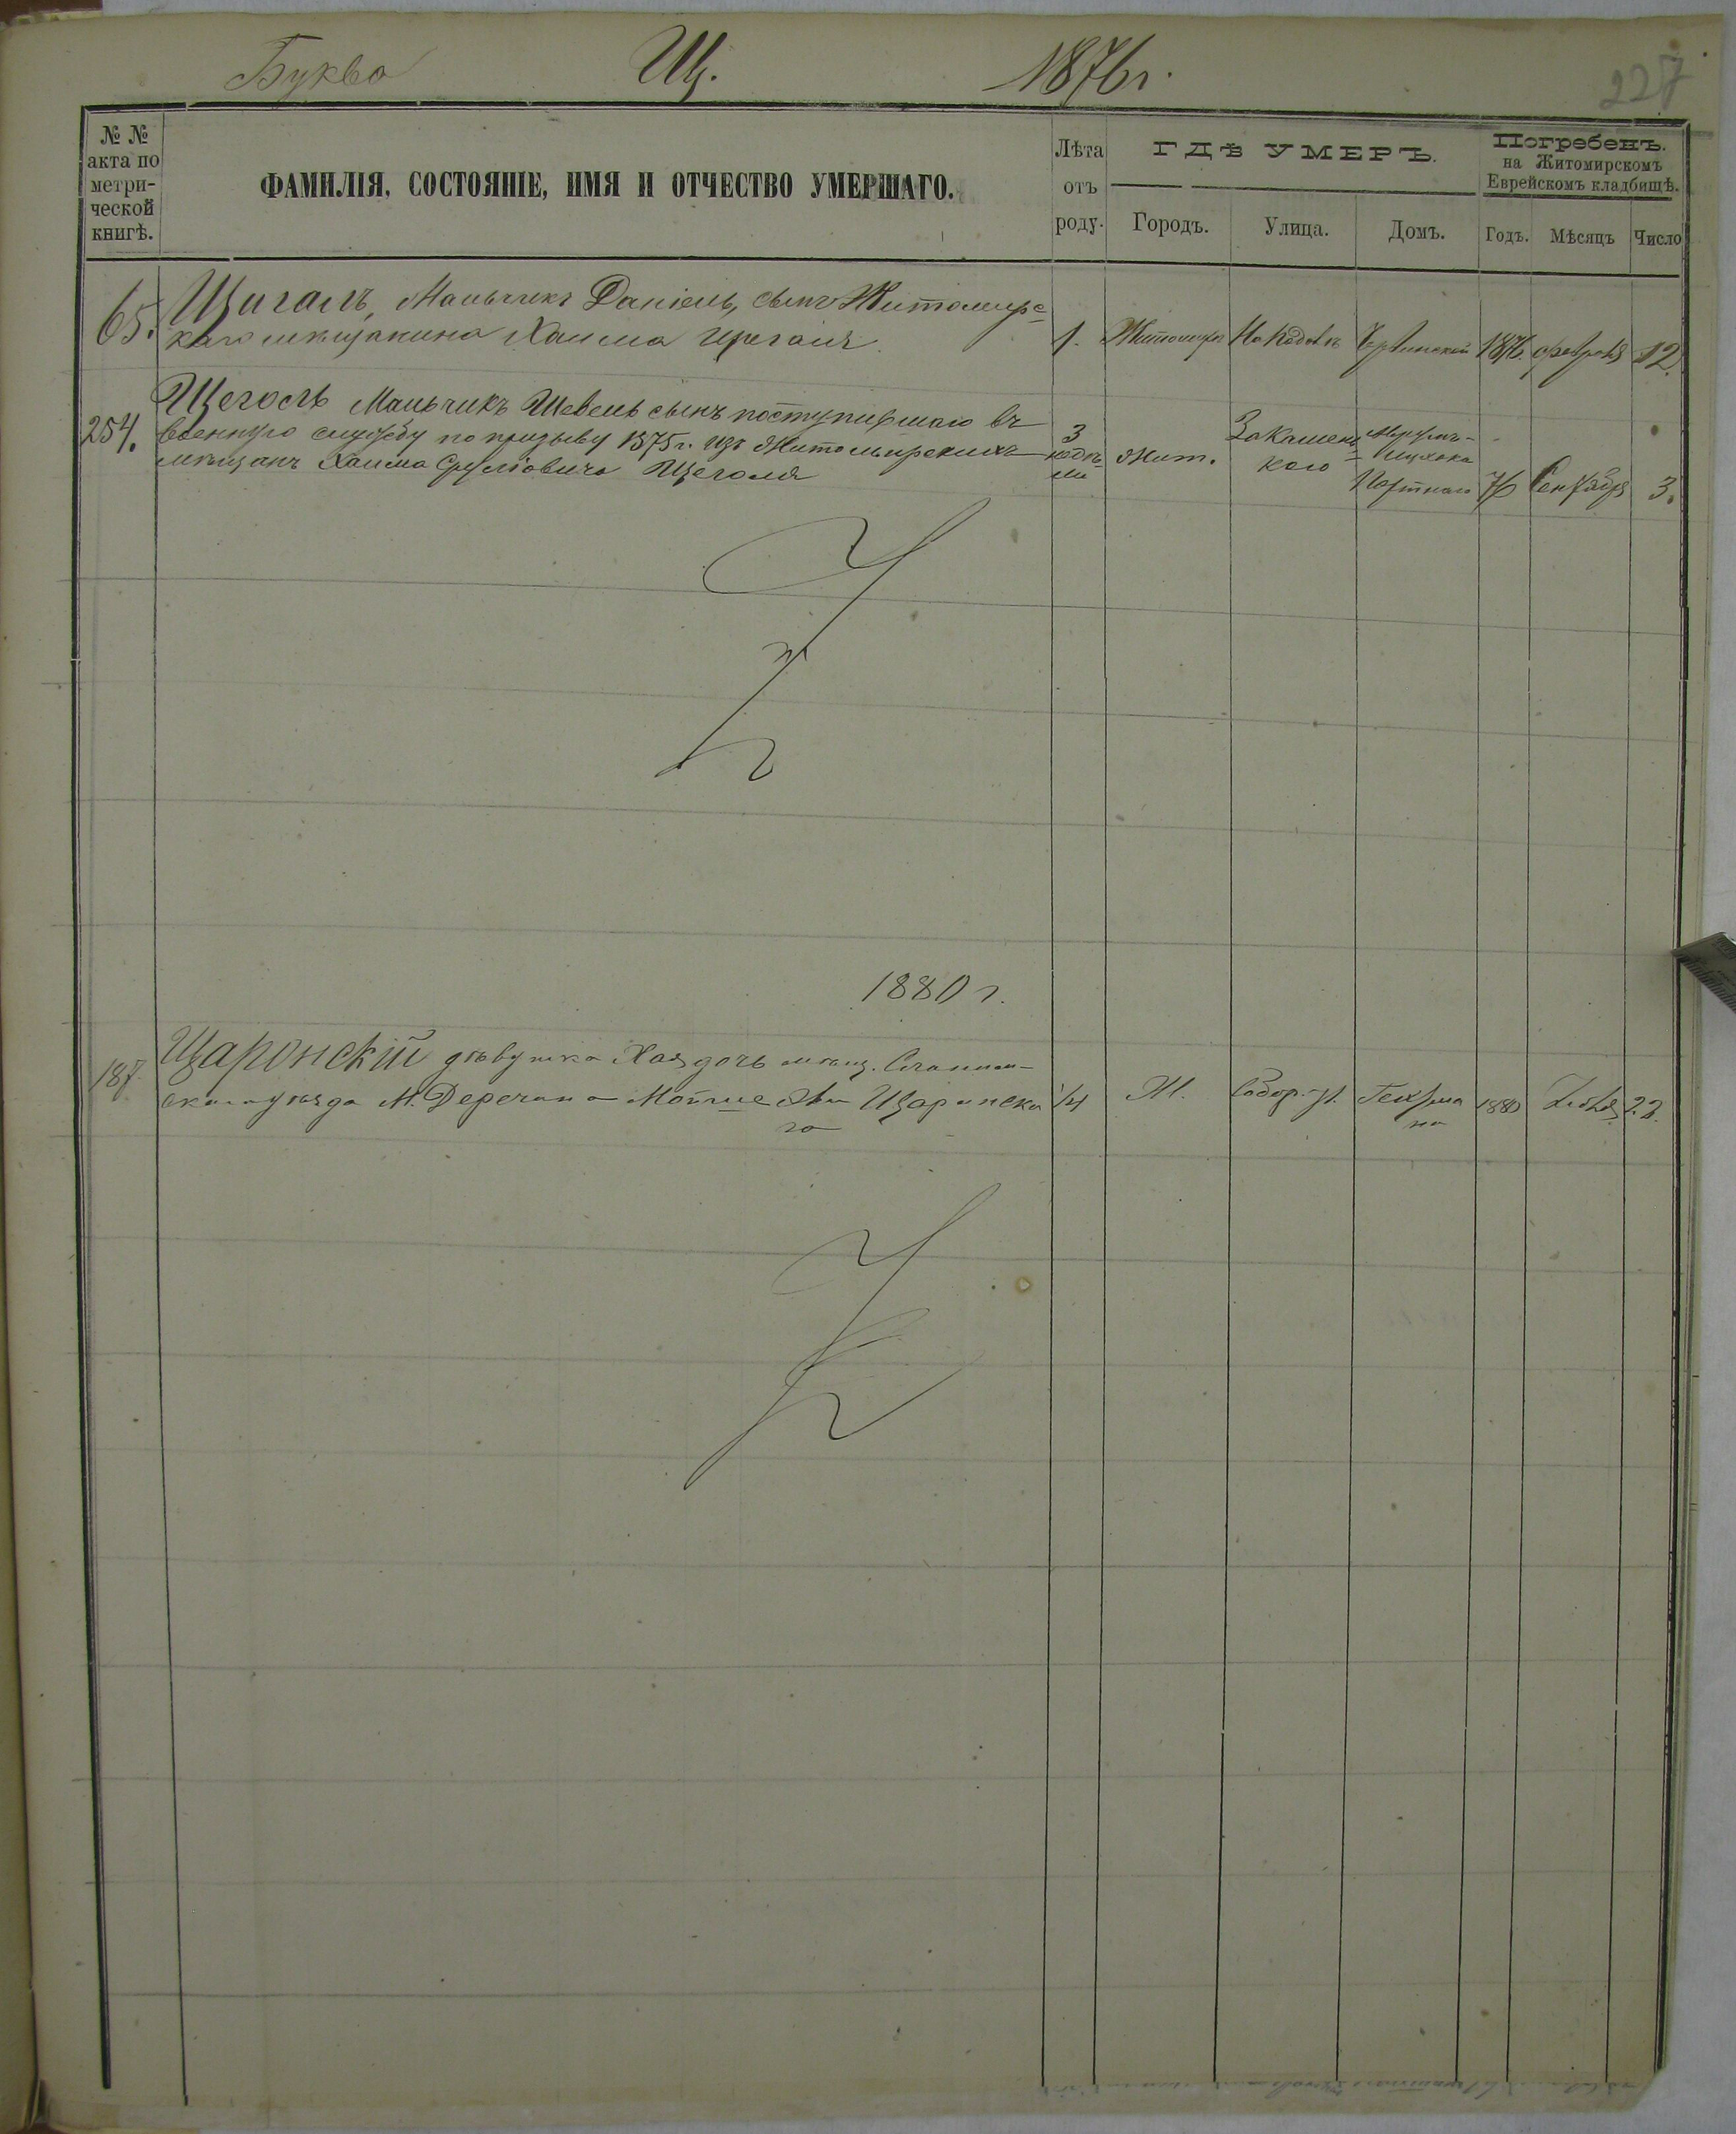 Буква Щ. 1876 г.
227
№ №
акта по
метри-
ческой
книгѣ.
ФАМИЛІЯ, СОСТОЯНІЕ, ИМЯ И ОТЧЕСТВО УМЕРШАГО.
Лѣта
отъ
роду.
ГДѢ УМЕРЪ.
Городъ. Улица. Домъ.
Погребенъ.
на Житомирскомъ
Еврейскомъ кладбищѣ.
Годъ. Мѣсяцъ Число
65. Щигаль, Мальчикъ Даніель, сынъ Житомирс-
каго мѣщанина Хаима Щегаля 1. Житомиръ 1876. Февраля 12.
254. Щеголь Мальчикъ Шевель сынъ поступившаго въ
военную службу по призыву 1875 г. изъ Житомирскихъ
мѣщанъ Хаима Сруліовича Щеголя
3
недѣ-
ли
Жит.
Закамень
кого
Ицхока
Портного
76 Сентября 3.
1880 г.
187. Щаронскій дѣвушка Хая дочь мѣщ. Слоним-
скаго уѣзда М. Деречина Щаронска
го
1/4 Ж. Собор. ул.
1880 23.